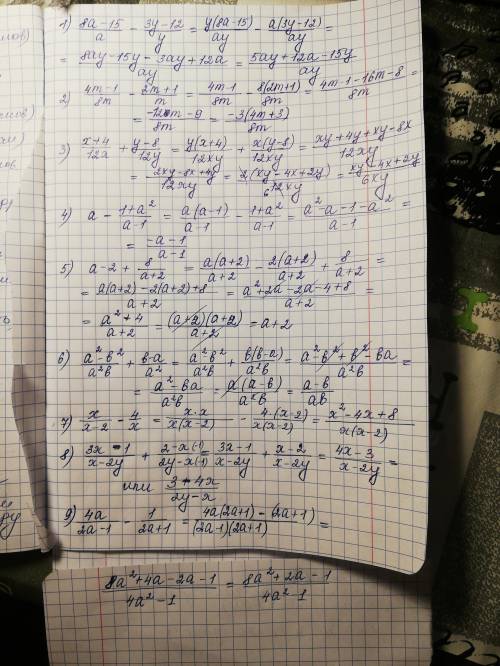 1) (8a-15)/a - (3y-12)/y = y(8a-15)/ay - a(3y-12)/ay =
= (8ay-15y-3ay+12a)/ay = (5ay+12a-15y)/ay
2) (4m-1)/8m - (2m+1)/m = (4m-1)/8m - 8(2m+1)/8m = (4m-1-16m-8)/8m =
= (-12m-9)/8m = -3(4m+3)/8m
3) (x+4)/12x + (y-8)/12y = y(x+4)/12xy + x(y-8)/12xy = (xy+4y+xy-8x)/12xy
= (2xy-8x+4y)/12xy = 2(xy-4x+2y)/12xy = (xy-4x+2y)/6xy
4) a - (1+a²)/(a-1) = a(a-1)/(a-1) - (1+a²)/(a-1) = (a²-a-1-a²)/(a-1) =
= (-a-1)/(a-1)
5) a-2 + 8/(a+2) = a(a+2)/(a+2) - 2(a+2)/(a+2) + 8/(a+2) =
= (a(a+2)-2(a+2)+8)/(a+2) = (a²+2a-2a-4+8)/(a+2) =
= (a²+4)/(a+2) = (a+2)(a+2)/(a+2) = a+2
6) (a²-b²)/a²b + (b-a)/a² = (a²-b²)/a²b + b(b-a)/a²b = (a²-b²+b²-ba)/a²b =
= (a²-ba)/a²b = a(a-b)/a²b = (a-b)/ab
7) x/(x-2) - 4/x = x·x/x(x-2) - 4·(x-2)/x(x-2) = (x²-4x+8)/x(x-2)
8) (3x-1)/(x-2y) + (2-x(-1))/(2y-x(-1)) = (3x-1)/(x-2y) + (x-2)/(x-2y) = (4x-3)/(x-2y) =
или (3-4x)/(2y-x)
9) 4a/(2a-1) - 1/(2a+1) = (4a(2a+1)-(2a+1))/(2a-1)(2a+1) =
(8a²+4a-2a-1)/(4a²-1) = (8a²+2a-1)/(4a²-1)